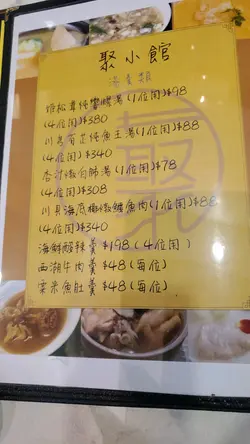 聚小館
湯羹類
姬松茸炖響螺湯(1位用)$98
(4位用)$380
川貝百芷炖魚王湯(1位用)$88
(4位用)$340
杏汁燉白肺湯(1位用)$78
(4位用)$308
川貝海底椰燉鱷魚肉(1位用)$88
(4位用)$340
海鮮酸辣羹 $198(4位用)
西湖牛肉羹 $48(每位)
粟米魚肚羹 $48(每位)
聚